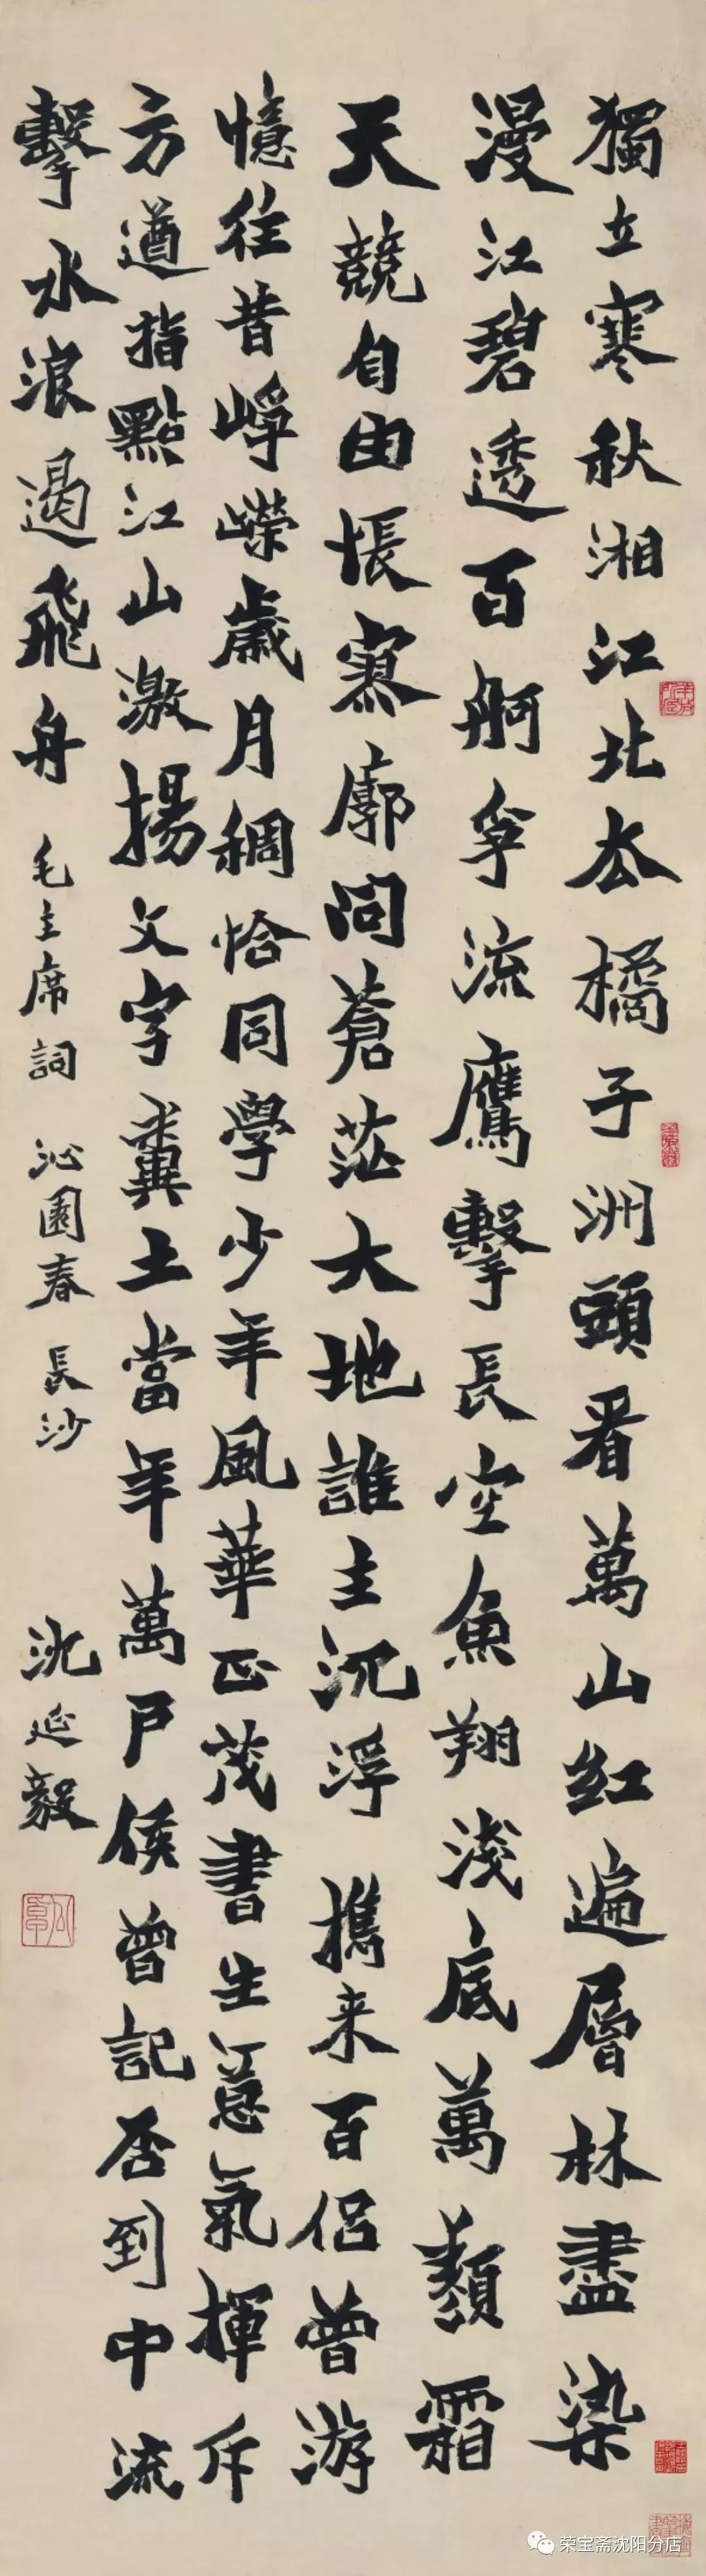 獨立寒秋湘江北去橘子洲頭看萬山紅遍層林盡染
漫江碧透百舸爭流鷹擊長空魚翔淺底萬類霜
天競自由悵寥廓問蒼茫大地誰主沉浮 攜来百侣曾游
憶往昔崢嶸歲月稠恰同學少年風華正茂書生意氣揮斥
方遒指點江山激揚文字糞土當年萬戶侯曾記否到中流
擊水浪遏飛舟 毛主席詞 沁園春 長沙 沈延毅
荣宝斋沈阳分店